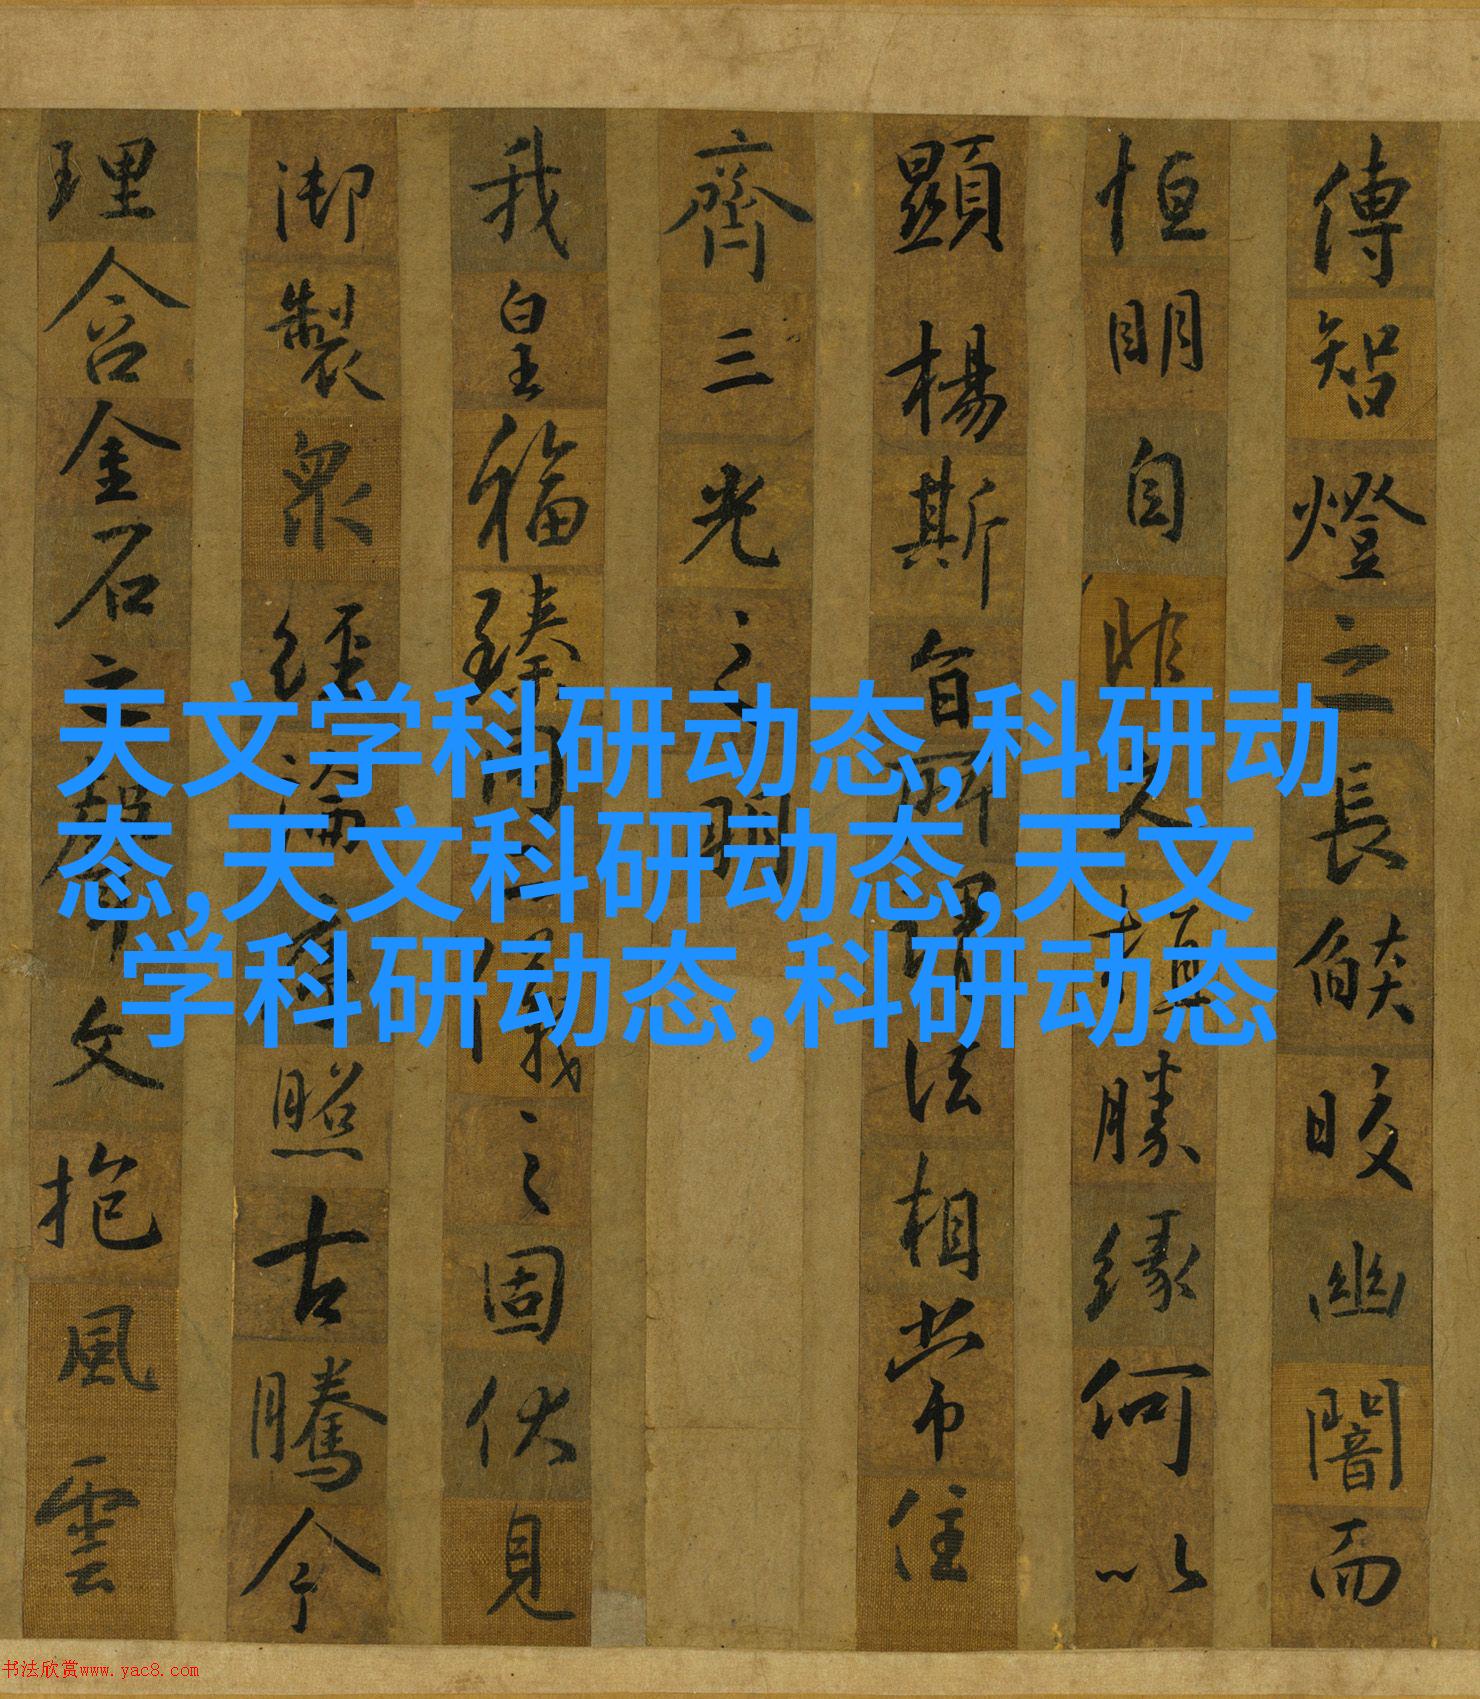 傳智燈之長燄皎幽闇而
恒明自非久植勝緣何以
顯楊斯旨所謂法相常住
齊三光之明
我皇福臻同二儀之固伏見
御製眾經論序照古騰今
理含金石之聲文抱風雲
天文学科研动态,科研动
态,天文科研动态,天文
学科研动态,科研动态
书法欣赏www.yac8.com